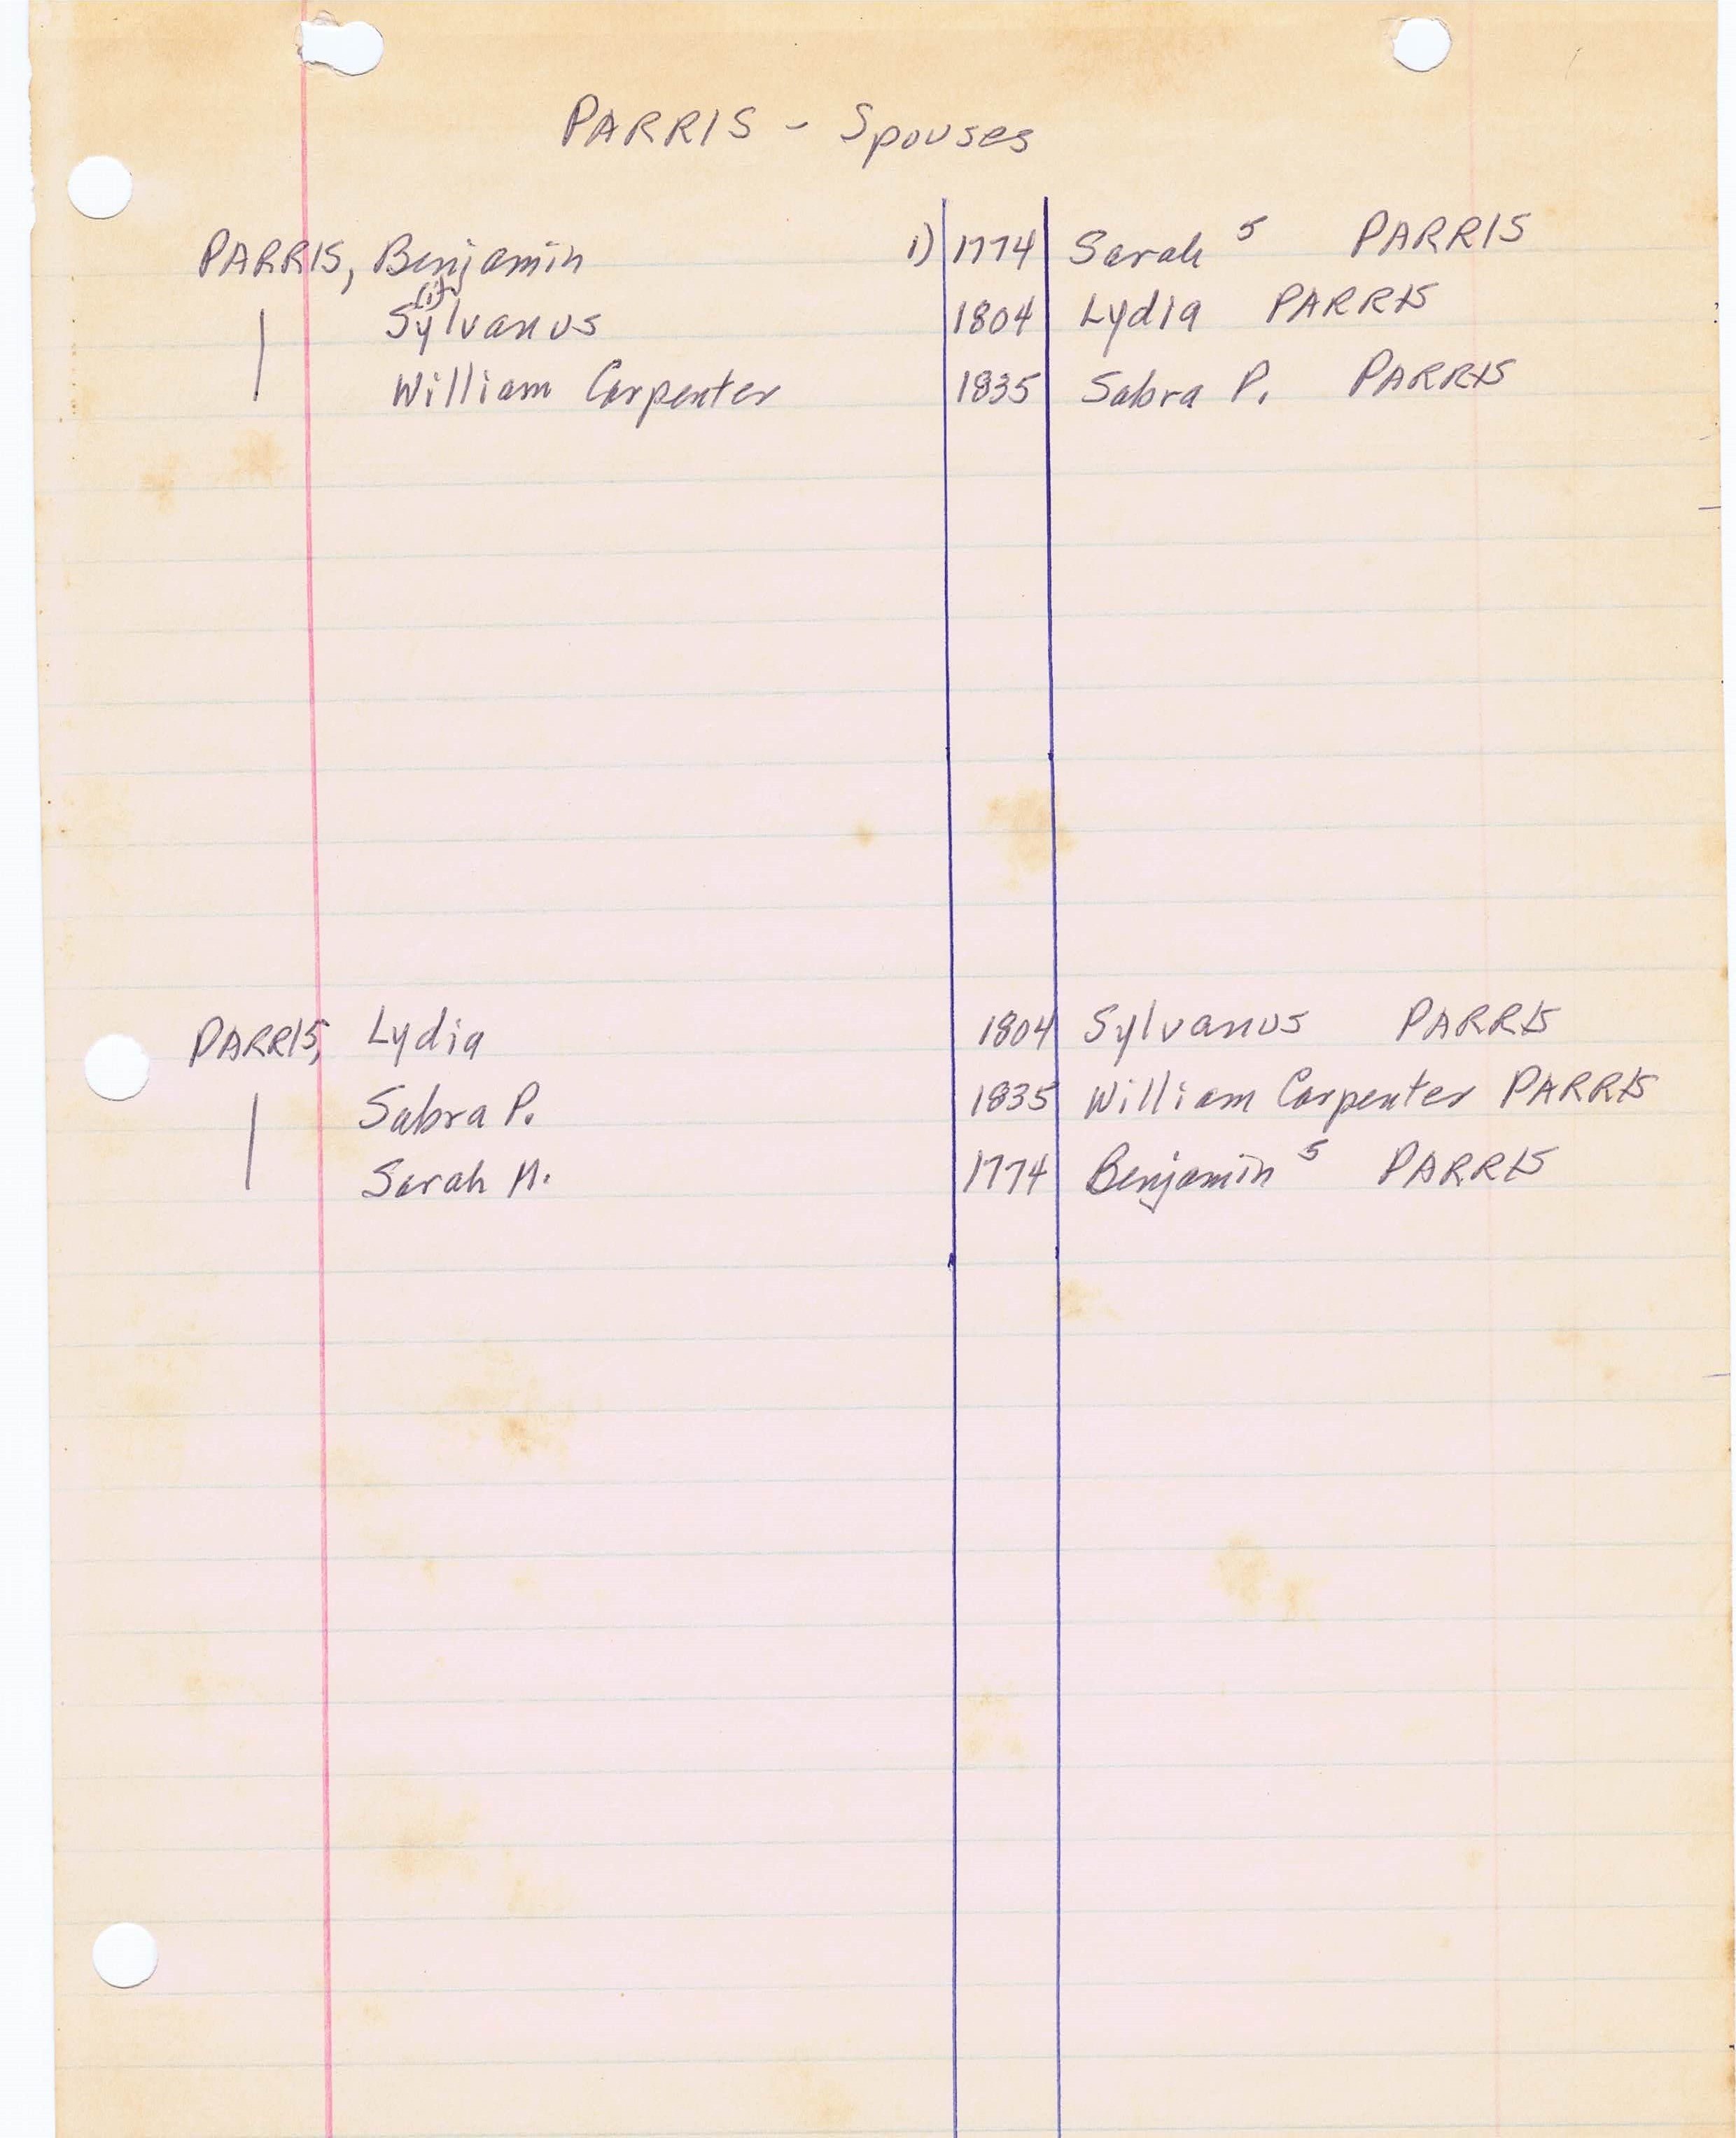 PARRIS - Spouses
PARRIS, Benjamin 1) 1774 Sarah 5 PARRIS
(i)
Sylvanus 1804 Lydia PARRIS
William Carpenter 1835 Sabra P. PARRIS
PARRIS, Lydia 1804 Sylvanus PARRIS
Sabra P. 1835 William Carpenter PARRIS
Sarah 1774 Benjamin 5 PARRIS